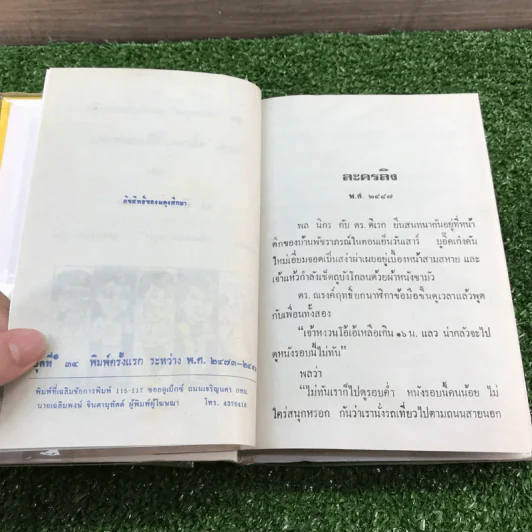 ลิขสิทธิ์ของผดุงศึกษา
ชุดที่ ๓๔ พิมพ์ครั้งแรก ระหว่าง พ.ศ. ๒๔๗๓-
พิมพ์ที่เฉลิมชัยการพิมพ์ 115-117 ซอย ถนนเจริญนคร กทม.
นายเฉลิมพงษ์ จินดานุทัศต์ ผู้พิมพ์ผู้โฆษณา โทร. 4376418
ละครลิง
พ.ศ. ๒๔๘๗
พล นิกร กับ ดร. ดิเรก ยืนสนทนากันอยู่ที่หน้า
ตึกของบ้านพัชราภรณ์ในตอนเย็นวันเสาร์ บูอิ๊คเก๋งคัน
ใหม่เอี่ยมจอดเป็นสง่าผ่าเผยอยู่เบื้องหน้าสามสหาย และ
เจ้าแห้วกำลังเช็ดถูบังโคลนด้วยผ้าหนังชามัว
ดร. ณรงค์ฤทธิ์ยกนาฬิกาข้อมือขึ้นดูเวลาแล้วพูด
กับเพื่อนทั้งสอง
"เจ้าหงวนโอ้เอ้เหลือเกิน ๑๖ น. แลว น่ากลัวจะไป
ดูหนังรอบนี้ไม่ทัน"
พลว่า
"ไม่ทันเราก็ไปดูรอบค่ำ หนังรอบนี้คนน้อย ไม่
ใคร่สนุกหรอก กันว่าเรานั่งรถเที่ยวไปตามถนนสายนอก